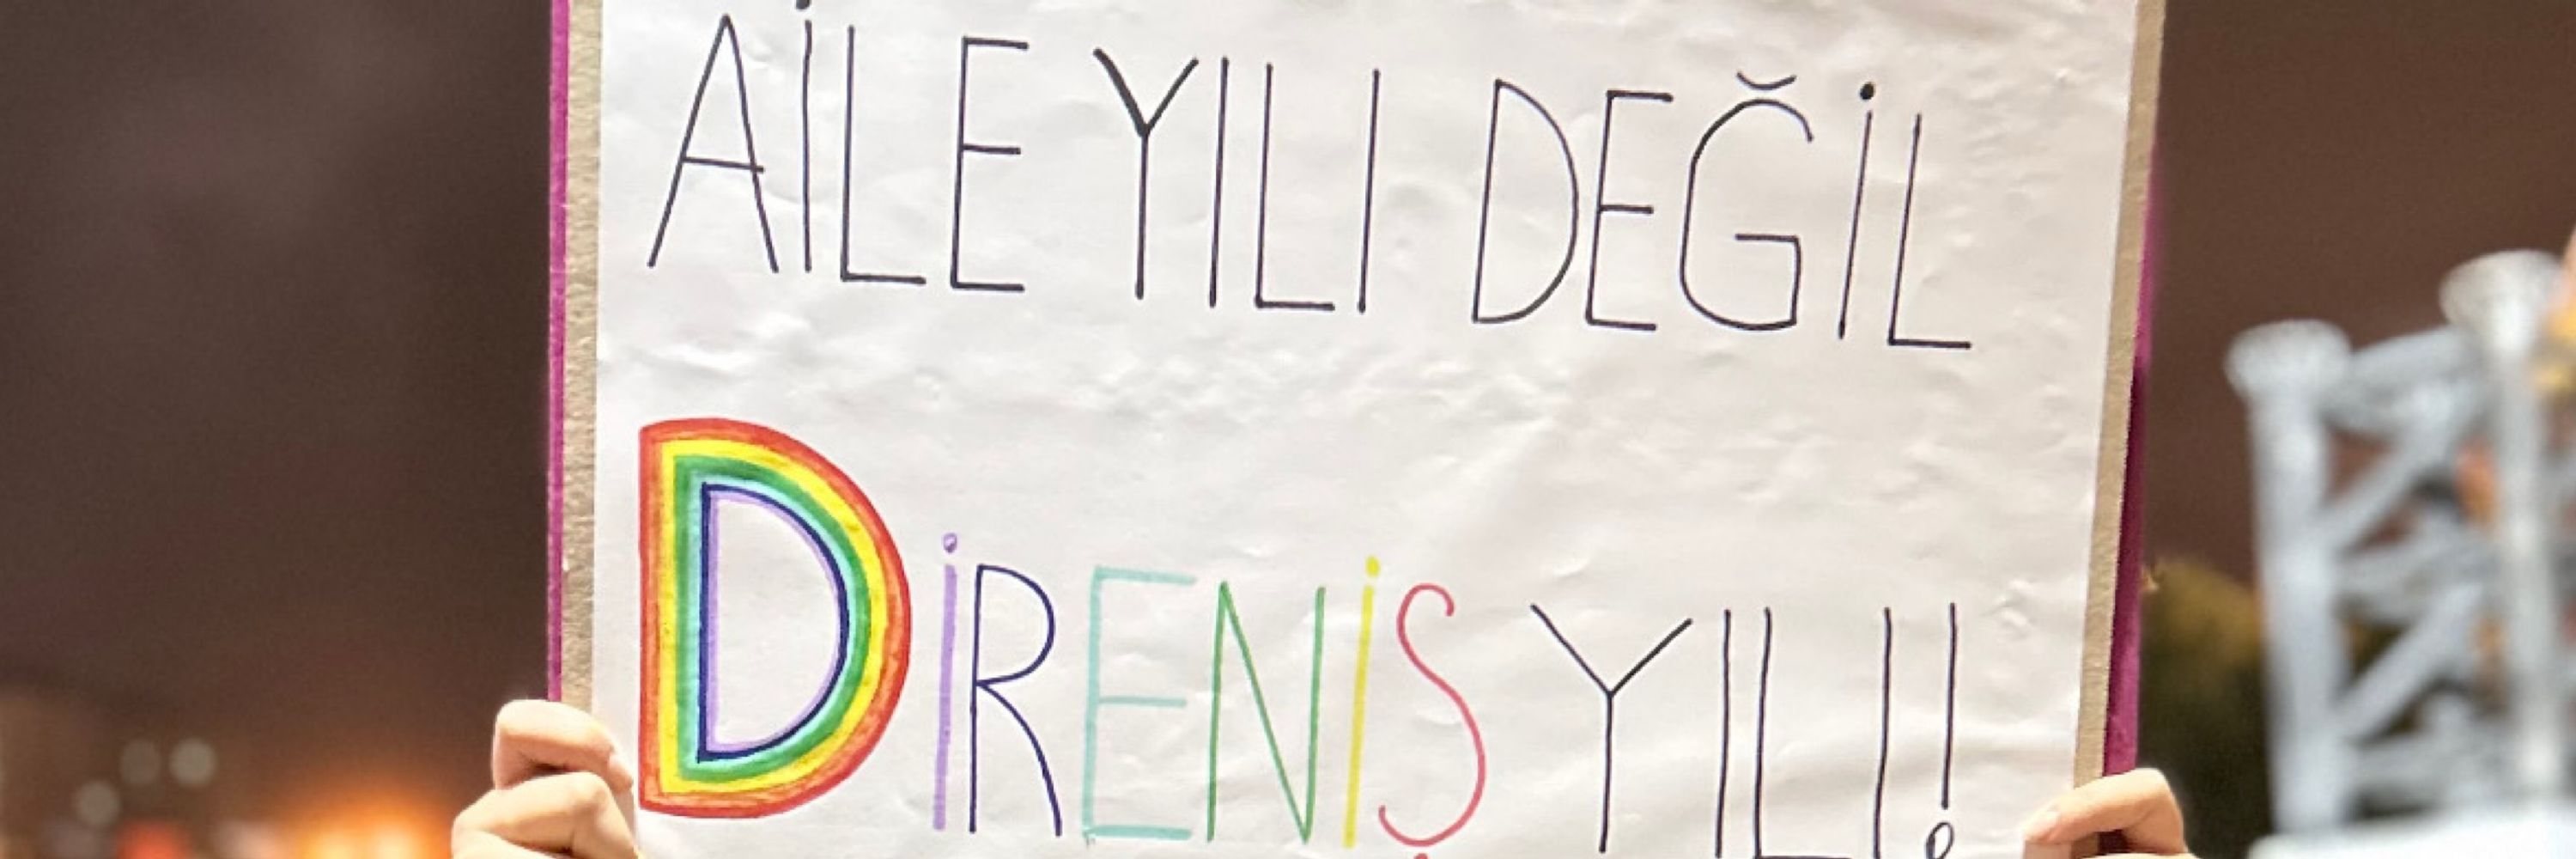 AİLE YILI DEĞİL
DİRENİŞ YILI!